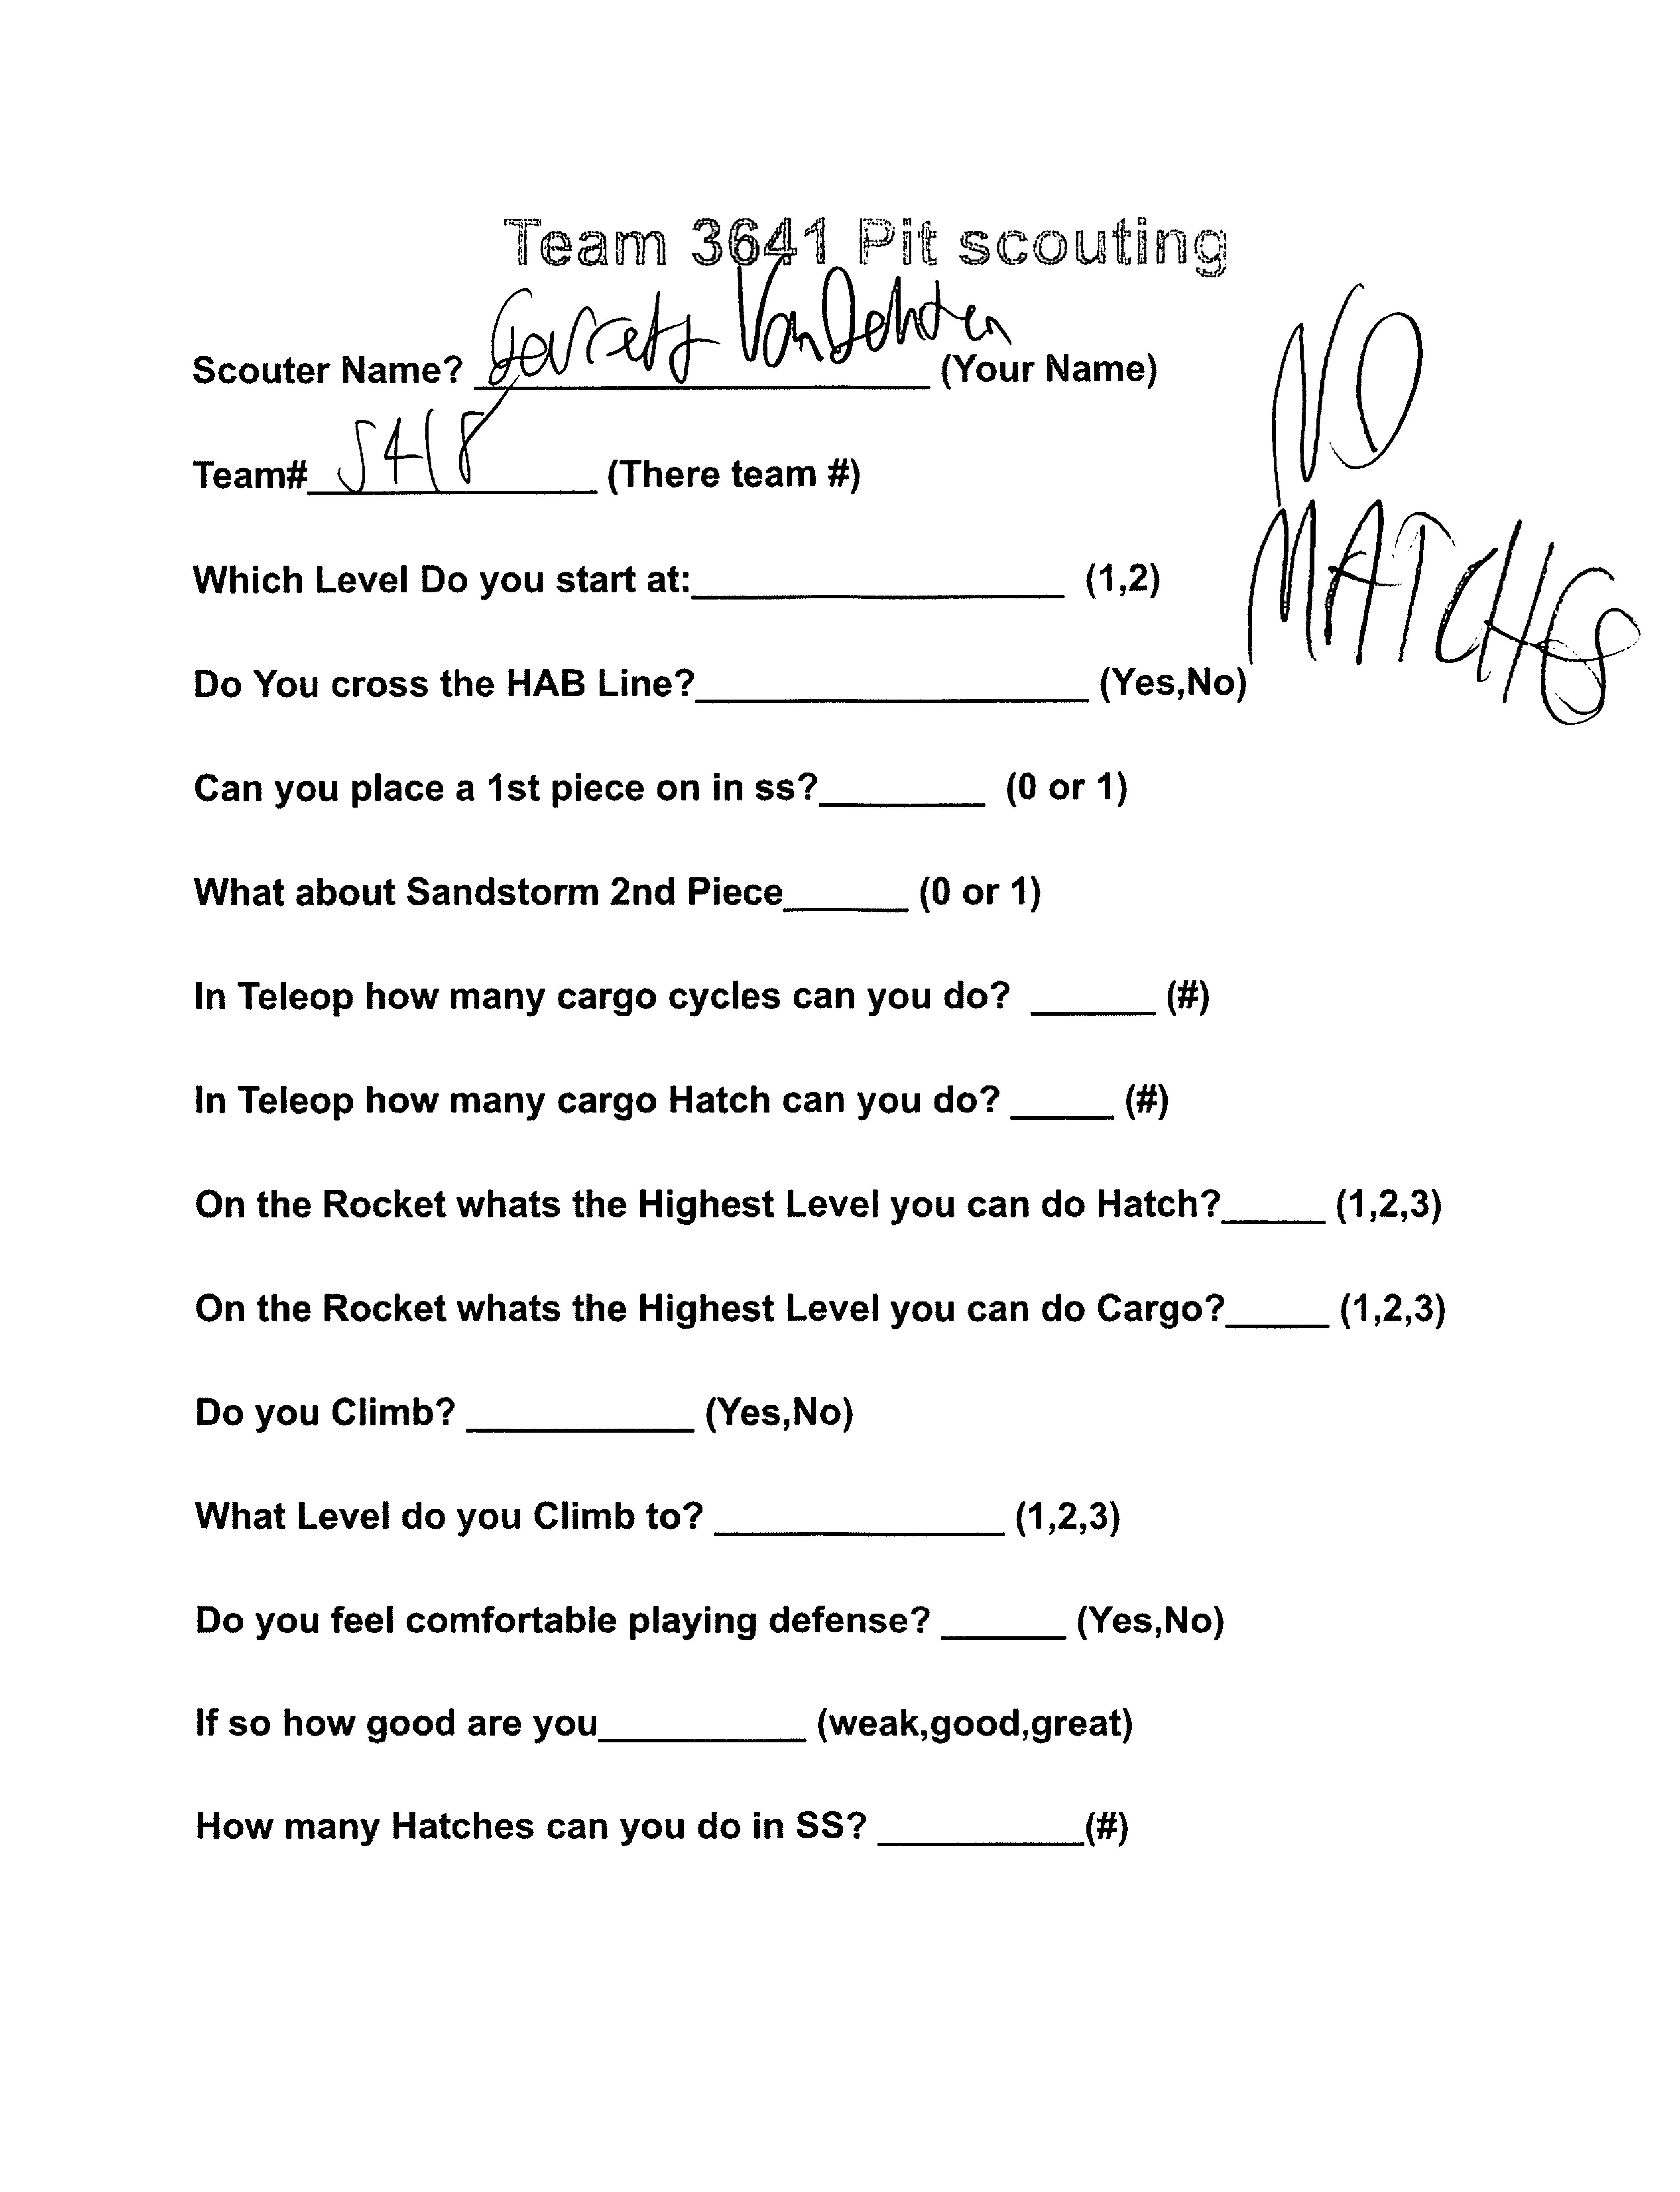 Team 3641 Pit scouting
Scouter Name? Garrett (Your Name)
Team# 5418 (There team #)
NO
MATCHES
Which Level Do you start at:__________ (1,2)
Do You cross the HAB Line?__________ (Yes,No)
Can you place a 1st piece on in ss?________ (0 or 1)
What about Sandstorm 2nd Piece______ (0 or 1)
In Teleop how many cargo cycles can you do? ______ (#)
In Teleop how many cargo Hatch can you do? _____ (#)
On the Rocket whats the Highest Level you can do Hatch?_____ (1,2,3)
On the Rocket whats the Highest Level you can do Cargo?_____ (1,2,3)
Do you Climb? ___________ (Yes,No)
What Level do you Climb to? ______________ (1,2,3)
Do you feel comfortable playing defense? ______ (Yes,No)
If so how good are you__________ (weak,good,great)
How many Hatches can you do in SS? __________(#)